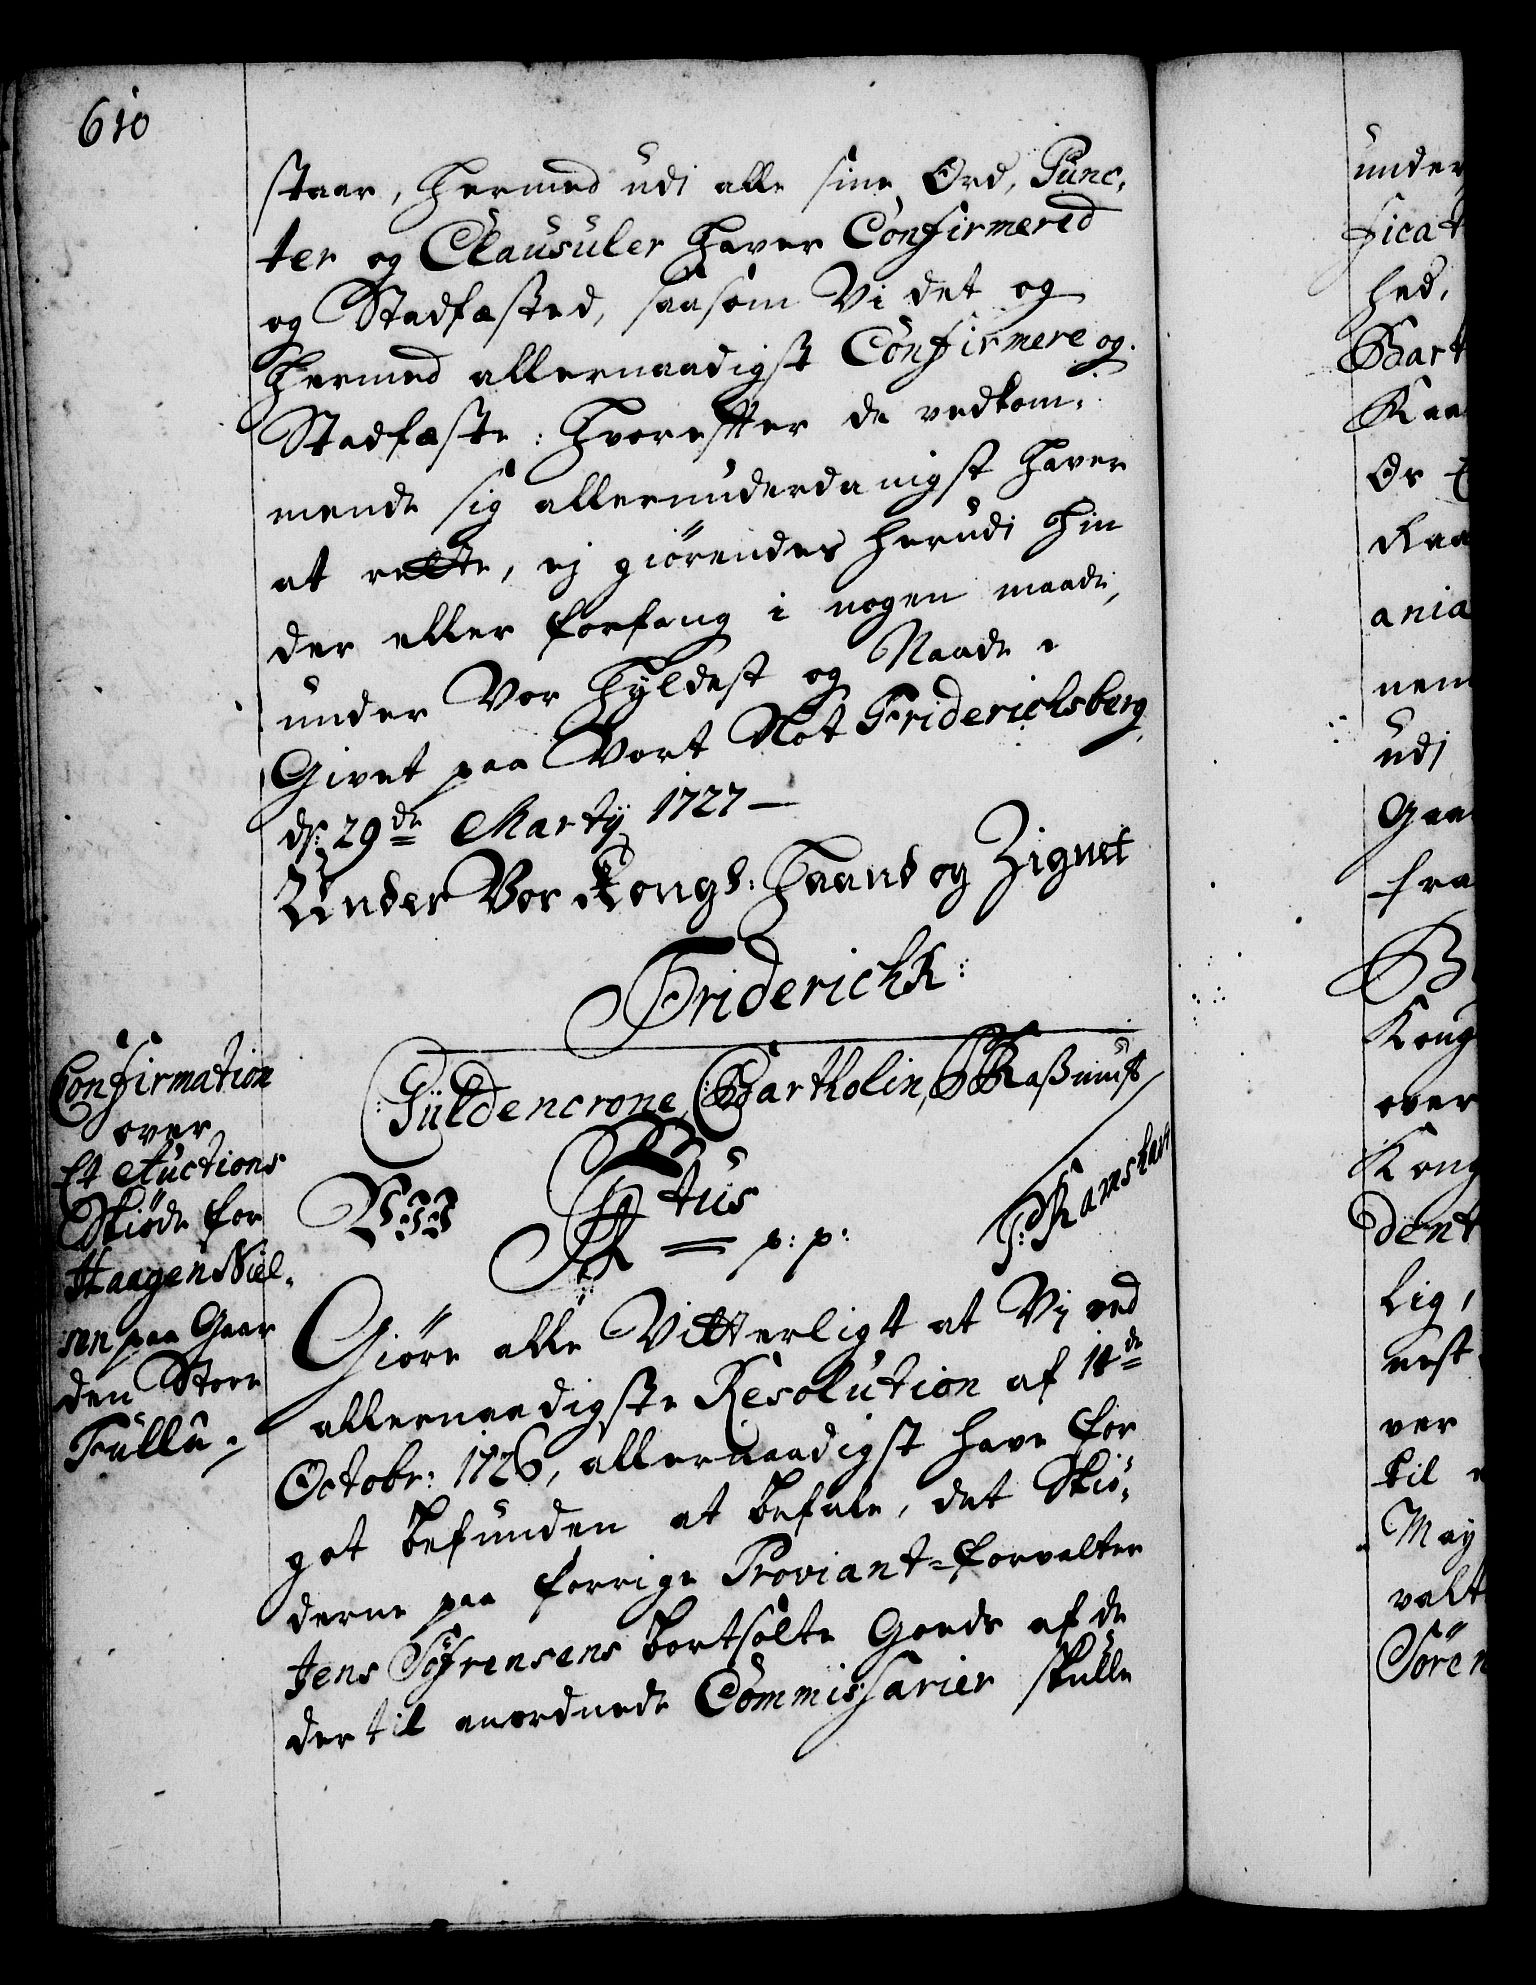 610
staar, hermed udi alle sine Ord, Punc,
ter og Clausuler haver Confirmered
og Stadfæsted, saasom Vi det og
hermed allernaadigst Confirmere og
Stadfæste: hvorefter de vedkom,
mende sig allerunderdanigst haver
at rette, ej giörendes herudi hin
der eller forfang i nogen maade,
under Vor hyldest og Naade
Givet paa Vort Slot Friderichsberg
ds: 29de Martij 1727
Under Vor Kongl: Haand og Zignet
Friderich R:
Güldencrone, Bartholin, Raßmuss
J: Ramshart
Confirmation
over
Et Auctions
Skiöde for
Haagen Niel,
sen paa Gaar
den Store
Fulla
Vii F 4tus
R p: p:
Giöre alle Vitterligt at Vi ved
allernaadigste Resolution af 14de
Octobr: 1726, allernaadigst have for
got befunden at befale, det Skiö,
derne paa forrige Proviant-forvalter
Jens Söfrensens bortsolte Gods af de
dertil anordnede Commissarier skulle
under
ficat
hed,
Bart
Kaa
Or
Raa
ania
nem
udi
Gaa
fra
B
Kong
over
Kong
dent
lig,
nest
ver
til
May
valt
Sören